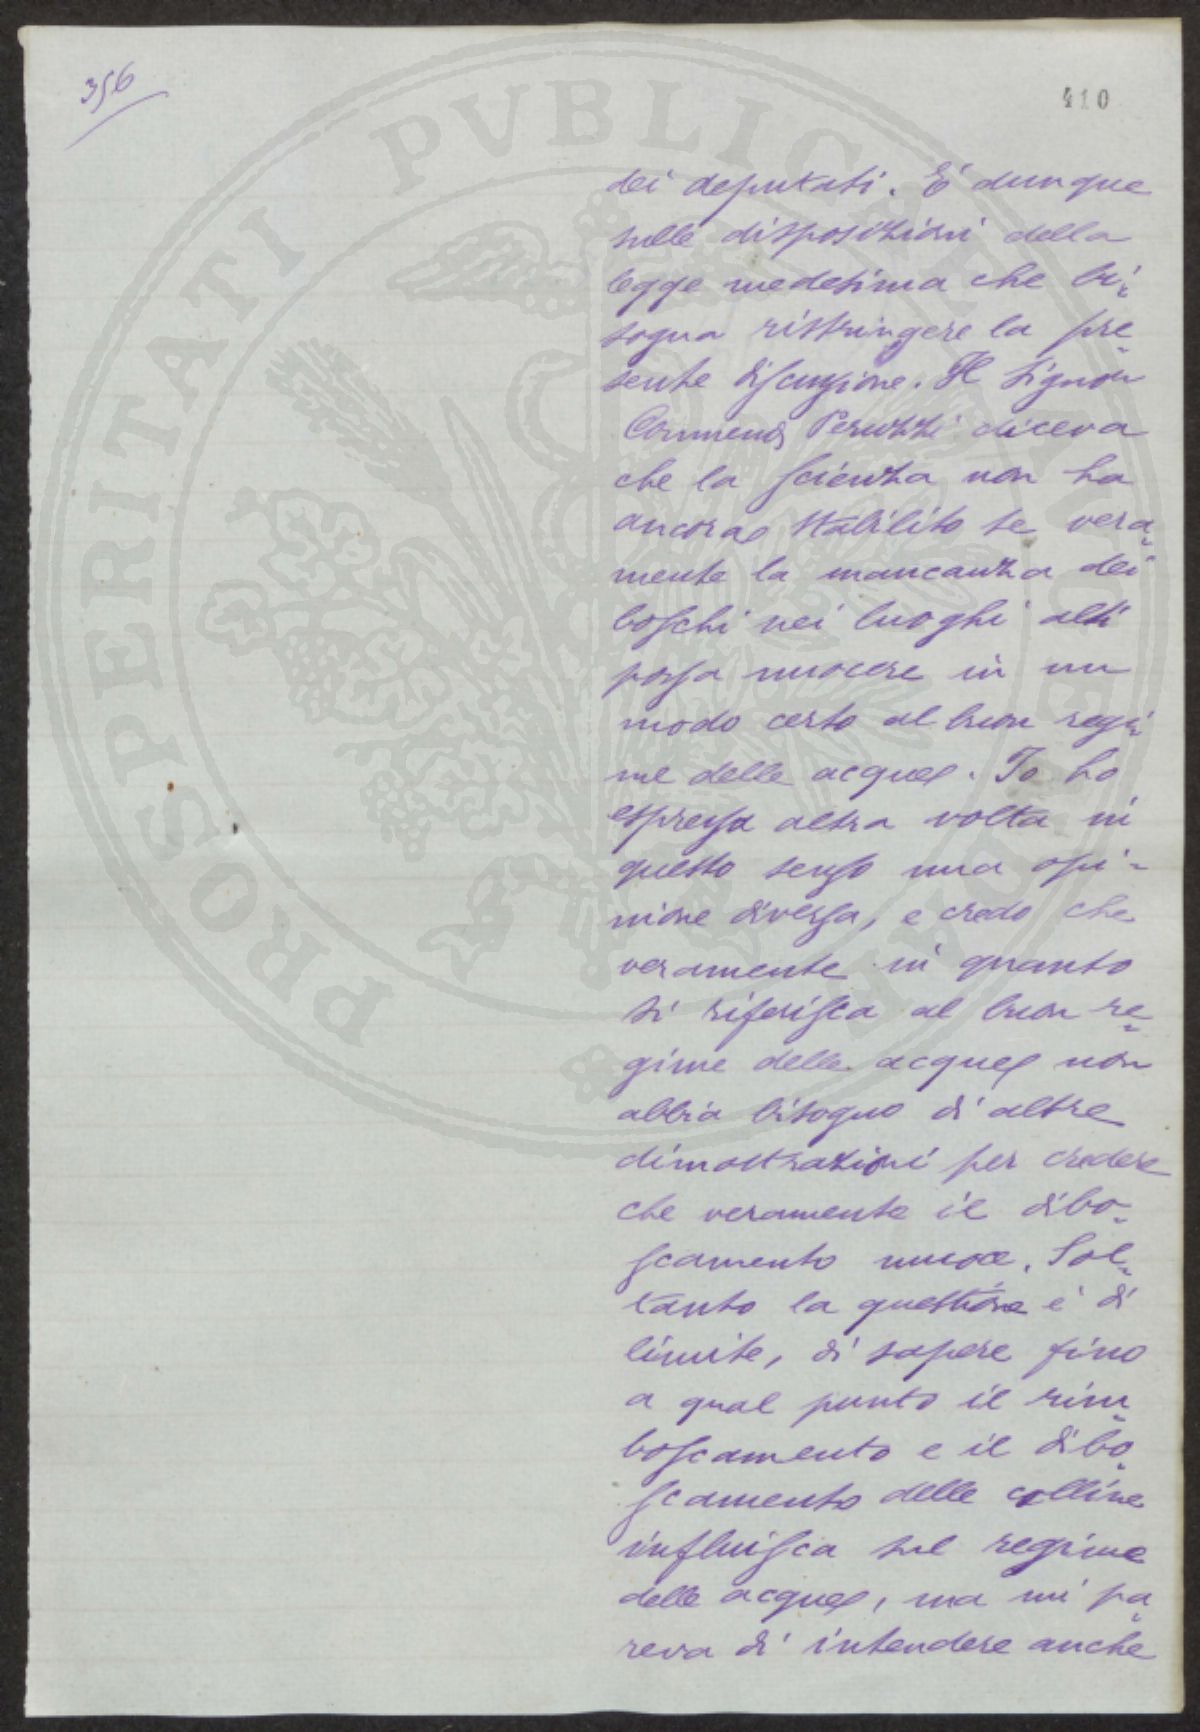 356
410
dei deputati. E' dunque
sulle disposizioni della
legge medesima che bi=
sogna ristringere la pre=
sente discussione. Il Signor
Commend. Peruzzi diceva
che la scienza non ha
ancora stabilito se vera=
mente la mancanza dei
boschi nei luoghi alti
possa nuocere in un
modo certo al buon regi=
me delle acque. Io ho
espressa altra volta in
questo senso una opi=
nione diversa, e credo che
veramente in quanto
si riferisca al buon re=
gime delle acque non
abbia bisogno di altre
dimostrazioni per credere
che veramente il disbo=
scamento nuoce. Sol=
tanto la questione è di
limite, di sapere fino
a qual punto il rim=
boscamento e il disbo=
scamento delle colline
influisca sul regime
delle acque, ma mi pa=
reva di intendere anche
PROSPERITATI PVBLICAE AVGENDAE